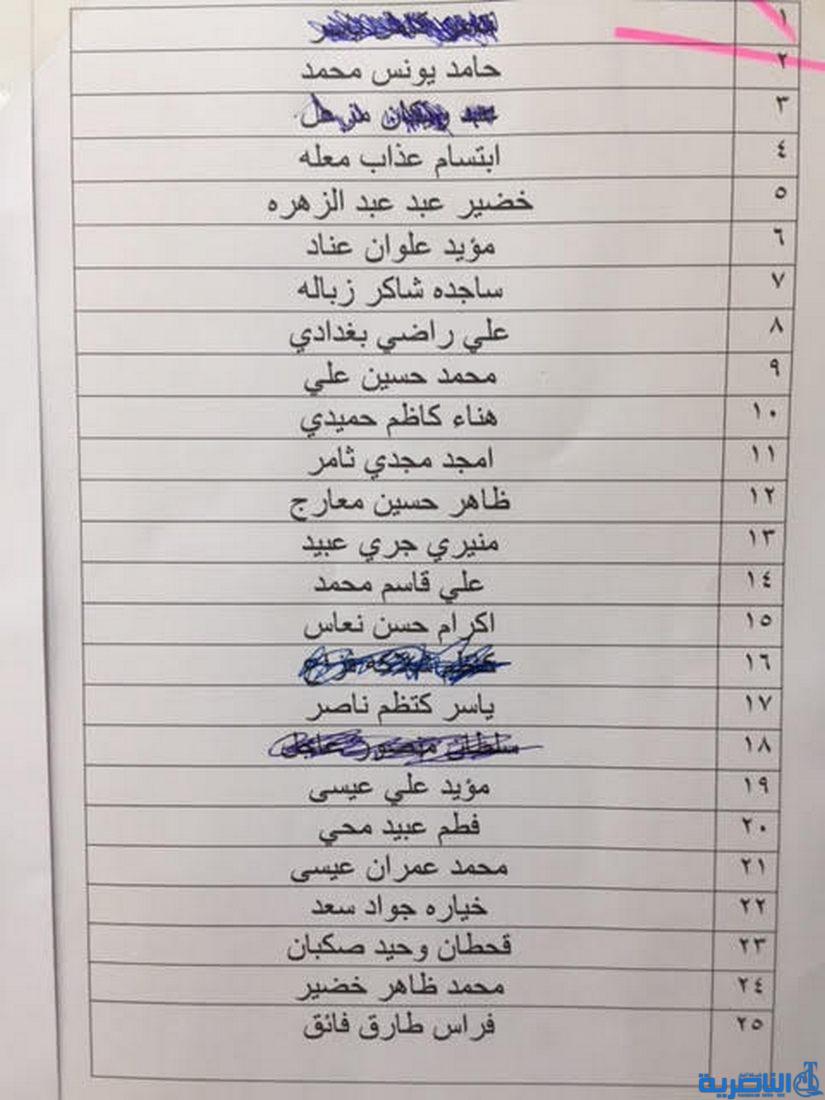 ١
٢ حامد يونس محمد
٣
٤ ابتسام عذاب معله
٥ خضير عبد عبد الزهره
٦ مؤيد علوان عناد
٧ ساجده شاكر زباله
٨ علي راضي بغدادي
٩ محمد حسين علي
١٠ هناء كاظم حميدي
١١ امجد مجدي ثامر
١٢ ظاهر حسين معارج
١٣ منيري جري عبيد
١٤ علي قاسم محمد
١٥ اكرام حسن نعاس
١٦
١٧ ياسر كتظم ناصر
١٨ سلطان منصور عاجل
١٩ مؤيد علي عيسى
٢٠ فطم عبيد محي
٢١ محمد عمران عيسى
٢٢ خياره جواد سعد
٢٣ قحطان وحيد صكبان
٢٤ محمد ظاهر خضير
٢٥ فراس طارق فائق
الناصرية